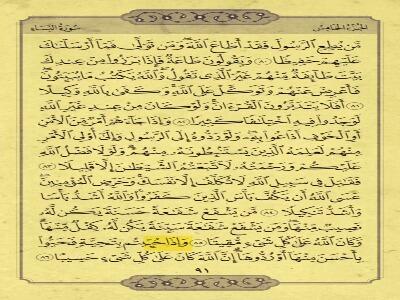 الجزء الخامس سورة النساء
مَّن يُطِعِ ٱلرَّسُولَ فَقَدْ أَطَاعَ ٱللَّهَ وَمَن تَوَلَّىٰ فَمَآ أَرْسَلْنَٰكَ
عَلَيْهِمْ حَفِيظًا ٨٠ وَيَقُولُونَ طَاعَةٌ فَإِذَا بَرَزُوا۟ مِنْ عِندِكَ
بَيَّتَ طَآئِفَةٌ مِّنْهُمْ غَيْرَ ٱلَّذِى تَقُولُ وَٱللَّهُ يَكْتُبُ مَا يُبَيِّتُونَ
فَأَعْرِضْ عَنْهُمْ وَتَوَكَّلْ عَلَى ٱللَّهِ وَكَفَىٰ بِٱللَّهِ وَكِيلًا
٨١ أَفَلَا يَتَدَبَّرُونَ ٱلْقُرْءَانَ وَلَوْ كَانَ مِنْ عِندِ غَيْرِ ٱللَّهِ
لَوَجَدُوا۟ فِيهِ ٱخْتِلَٰفًا كَثِيرًا ٨٢ وَإِذَا جَآءَهُمْ أَمْرٌ مِّنَ ٱلْأَمْنِ
أَوِ ٱلْخَوْفِ أَذَاعُوا۟ بِهِۦ وَلَوْ رَدُّوهُ إِلَى ٱلرَّسُولِ وَإِلَىٰٓ أُو۟لِى ٱلْأَمْرِ
مِنْهُمْ لَعَلِمَهُ ٱلَّذِينَ يَسْتَنۢبِطُونَهُۥ مِنْهُمْ وَلَوْلَا فَضْلُ ٱللَّهِ
عَلَيْكُمْ وَرَحْمَتُهُۥ لَٱتَّبَعْتُمُ ٱلشَّيْطَٰنَ إِلَّا قَلِيلًا ٨٣
فَقَٰتِلْ فِى سَبِيلِ ٱللَّهِ لَا تُكَلَّفُ إِلَّا نَفْسَكَ وَحَرِّضِ ٱلْمُؤْمِنِينَ
عَسَى ٱللَّهُ أَن يَكُفَّ بَأْسَ ٱلَّذِينَ كَفَرُوا۟ وَٱللَّهُ أَشَدُّ بَأْسًا
وَأَشَدُّ تَنكِيلًا ٨٤ مَّن يَشْفَعْ شَفَٰعَةً حَسَنَةً يَكُن لَّهُۥ
نَصِيبٌ مِّنْهَا وَمَن يَشْفَعْ شَفَٰعَةً سَيِّئَةً يَكُن لَّهُۥ كِفْلٌ مِّنْهَا
وَكَانَ ٱللَّهُ عَلَىٰ كُلِّ شَىْءٍ مُّقِيتًا ٨٥ وَإِذَا حُيِّيتُم بِتَحِيَّةٍ فَحَيُّوا۟
بِأَحْسَنَ مِنْهَآ أَوْ رُدُّوهَآ إِنَّ ٱللَّهَ كَانَ عَلَىٰ كُلِّ شَىْءٍ حَسِيبًا ٨٦
٩١